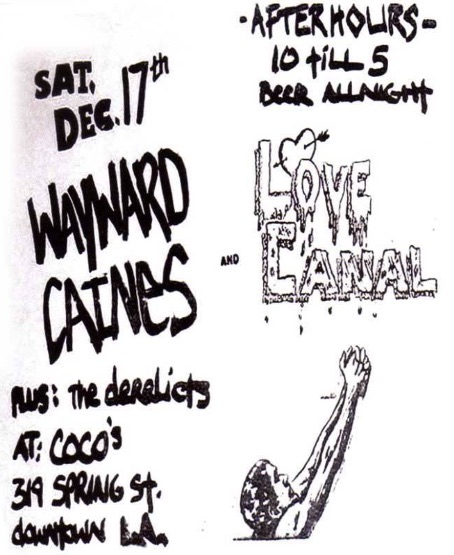 -AFTERHOURS-
10 till 5
BEER ALLNIGHT
SAT.
DEC. 17th
WAYWARD
CAINES
AND
LOVE
CANAL
PLUS: The derelicts
AT: COCO's
319 SPRING St.
downtown L.A.